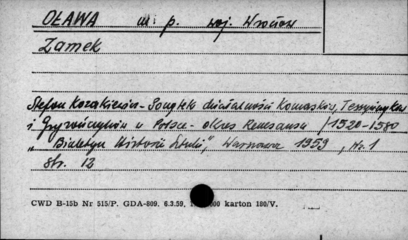 OŁAWA m. p. woj. Wrocław
Zamek
Stefan Kozakiewicz - Początek działalności Komasków, Tessyńczyków
i Gryzończyków w Polsce - okres Renesansu /1520-1580
„ Biuletyn Historii Sztuki", Warszawa 1959, Nr. 1
str. 12
CWD B-15b Nr 515/P. GDA-809. 6.3.59, 000 karton 180/V.